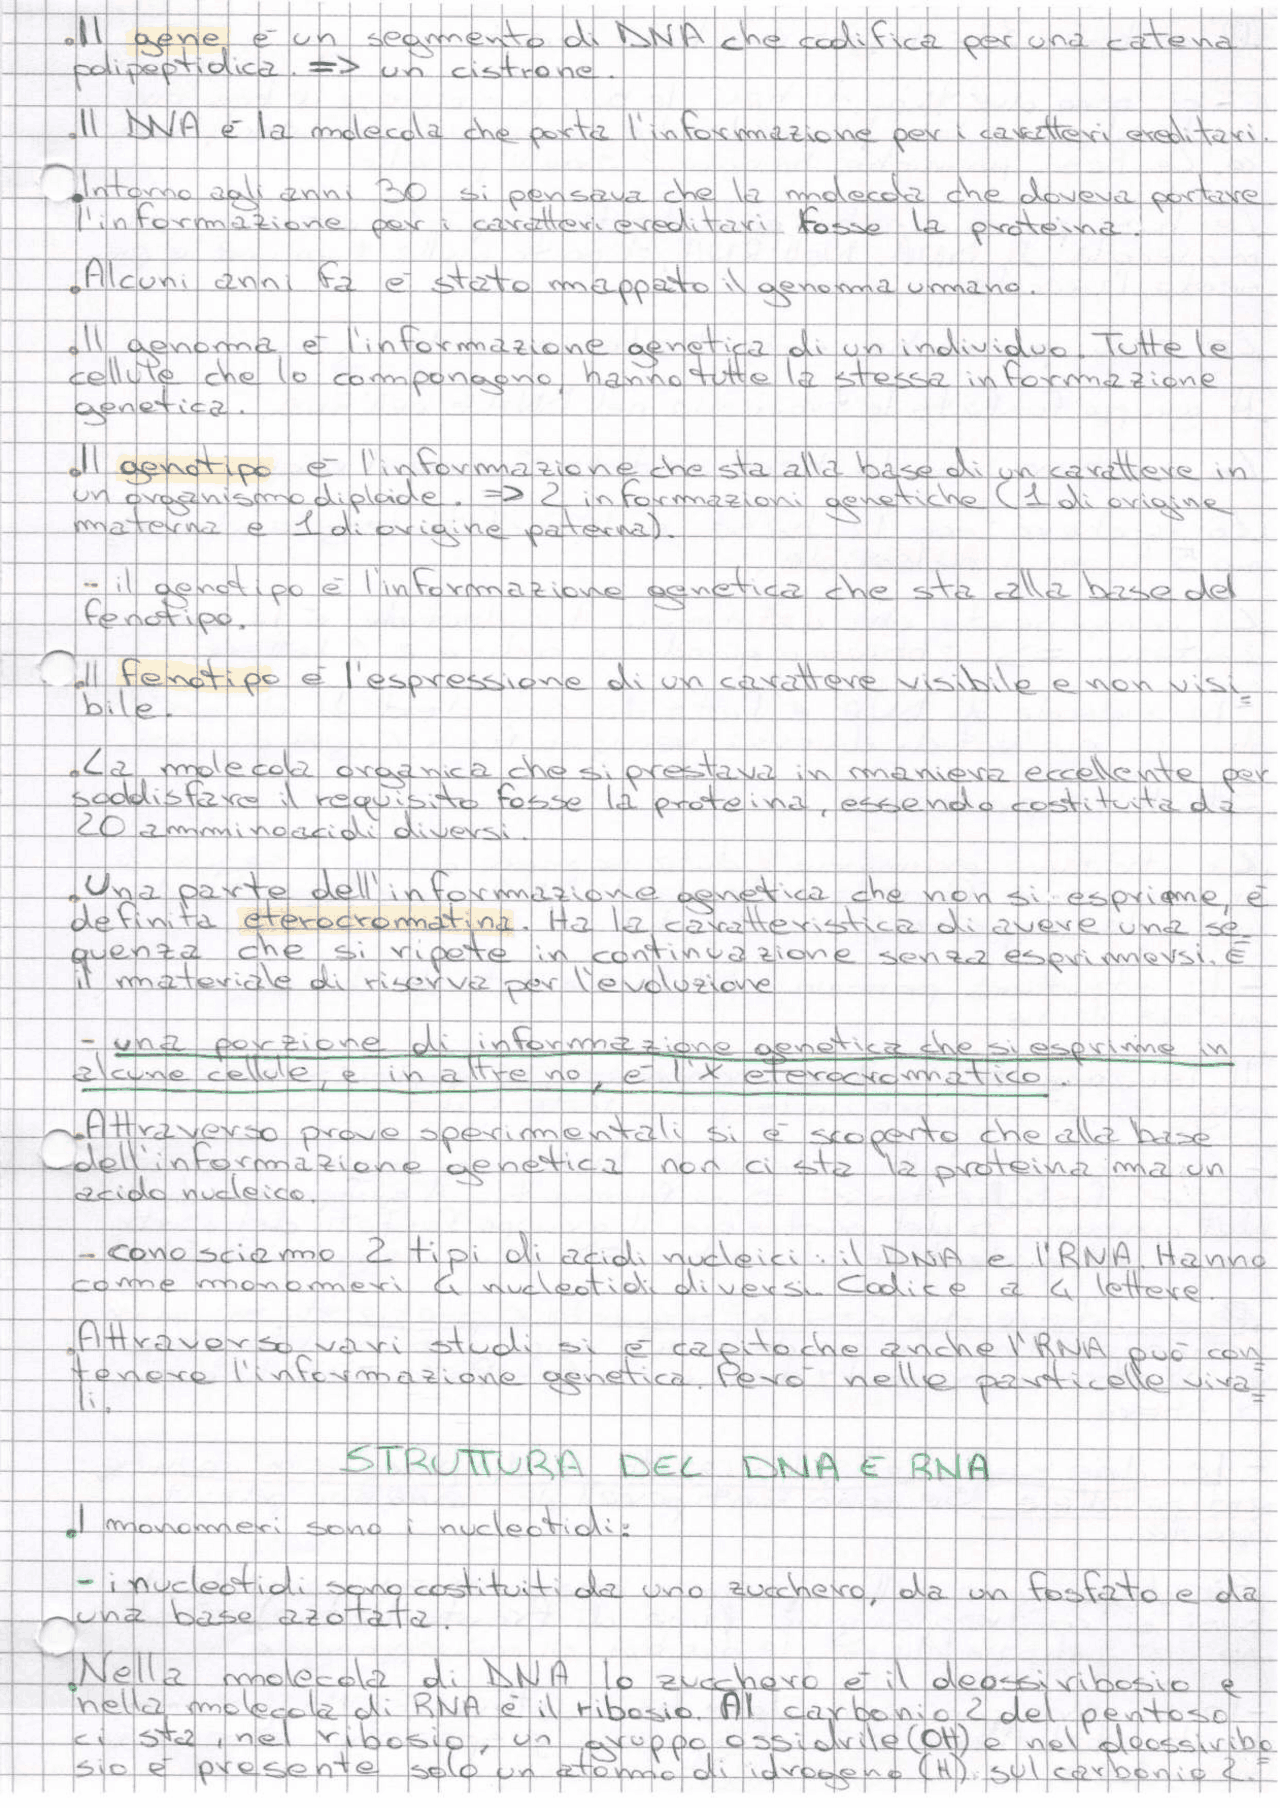 .Il gene è un segmento di DNA che codifica per una catena
polipeptidica. => un cistrone.
.Il DNA è la molecola che porta l'informazione per i caratteri ereditari.
.Intorno agli anni 30 si pensava che la molecola che doveva portare
l'informazione per i caratteri ereditari fosse la proteina.
.Alcuni anni fa è stato mappato il genoma umano.
.Il genoma è l'informazione genetica di un individuo. Tutte le
cellule che lo compongono, hanno tutte la stessa informazione
genetica.
.Il genotipo è l'informazione che sta alla base di un carattere in
un organismo diploide. => 2 informazioni genetiche (1 di origine
materna e 1 di origine paterna).
- il genotipo è l'informazione genetica che sta alla base del
fenotipo.
.Il fenotipo è l'espressione di un carattere visibile e non visi=
bile.
.La molecola organica che si prestava in maniera eccellente per
soddisfare il requisito fosse la proteina, essendo costituita da
20 amminoacidi diversi.
.Una parte dell'informazione genetica che non si esprime, è
definita eterocromatina. Ha la caratteristica di avere una se=
quenza che si ripete in continuazione senza esprimersi. È
il materiale di riserva per l'evoluzione
- una porzione di informazione genetica che si esprime in
alcune cellule, e in altre no, è l'X eterocromatico.
.Attraverso prove sperimentali si è scoperto che alla base
dell'informazione genetica non ci sta la proteina ma un
acido nucleico.
- conosciamo 2 tipi di acidi nucleici: il DNA e l'RNA. Hanno
come monomeri 4 nucleotidi diversi. Codice a 4 lettere.
.Attraverso vari studi si è capito che anche l'RNA può con=
tenere l'informazione genetica. Però nelle particelle vira=
li.
STRUTTURA DEL DNA E RNA
.I monomeri sono i nucleotidi:
- i nucleotidi sono costituiti da uno zucchero, da un fosfato e da
una base azotata.
.Nella molecola di DNA lo zucchero è il deossiribosio e
nella molecola di RNA è il ribosio. Al carbonio 2 del pentoso
ci sta, nel ribosio, un gruppo ossidrile (OH) e nel deossiribo=
sio è presente solo un atomo di idrogeno (H) sul carbonio 2.